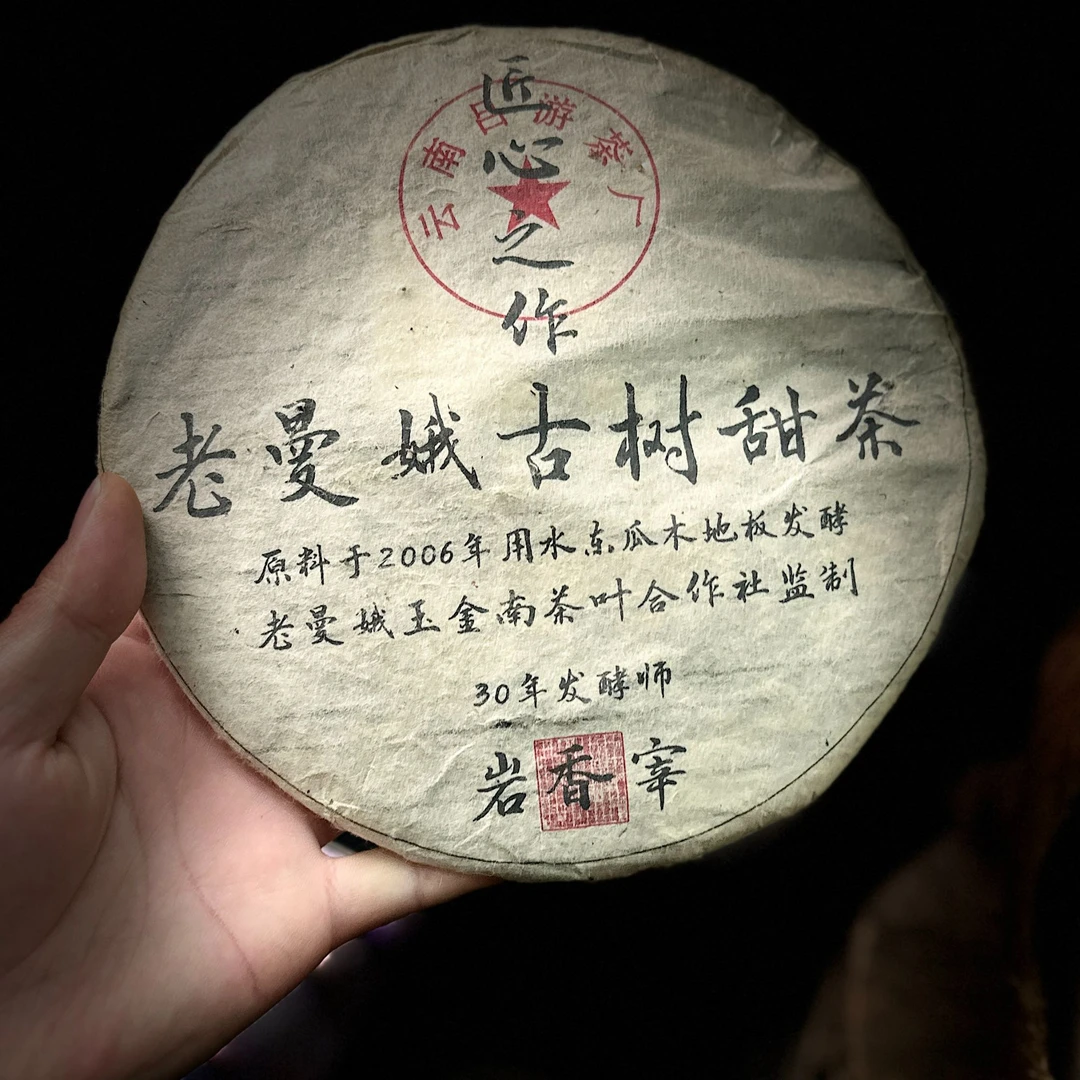 匠心之作
云南吕游茶厂
老曼娥古树甜茶
原料于2006年用水东瓜木地板发酵
老曼娥玉金南茶叶合作社监制
30年发酵师
岩香宰